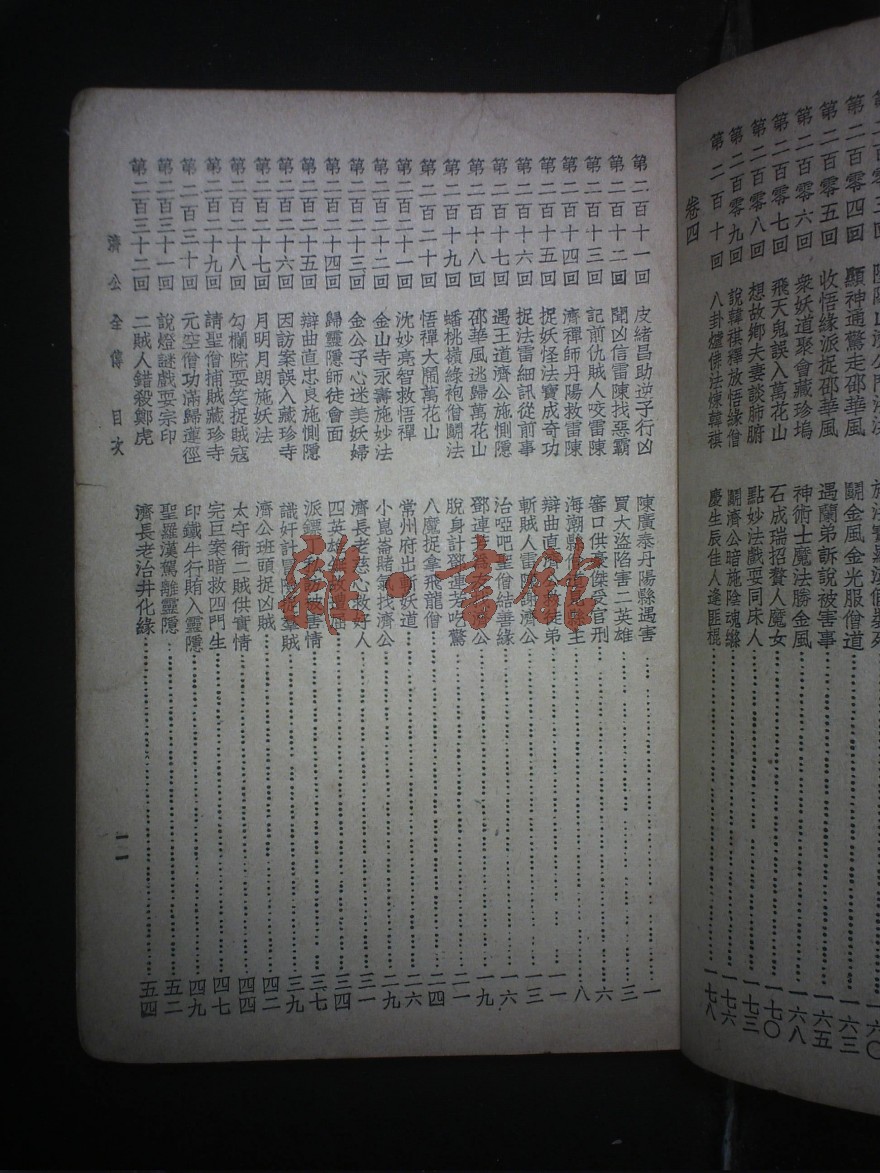 第二百零四回 顯神通驚走邵華風 鬪金風金光服僧道 一六三
第二百零五回 收悟緣派捉邵華風 遇蘭弟訴說被害事 一六五
第二百零六回 衆妖道聚會藏珍塢 神術士魔法勝金風 一六八
第二百零七回 飛天鬼誤入萬花山 石成瑞招贅人魔女 一七〇
第二百零八回 想故鄉夫妻談肺腑 點妙法戲耍同床人 一七三
第二百零九回 說韓祺釋放悟緣僧 鬪濟公暗施陰魂縧 一七六
第二百十回 八卦爐佛法煉韓祺 慶生辰佳人逢匪棍 一七八
卷四
第二百十一回 皮緒昌助逆子行凶 陳廣泰丹陽縣遇害 一
第二百十二回 聞凶信雷陳找惡霸 買大盜陷害二英雄 三
第二百十三回 記前仇賊人咬雷陳 審口供豪傑受官刑 六
第二百十四回 濟禪師丹陽救雷陳 海潮縣 縣主 八
第二百十五回 捉妖怪法寶成奇功 辯曲直濟 救徒弟 一一
第二百十六回 捉法雷細訊從前事 斬賊人雷陳謝濟公 一三
第二百十七回 遇王道濟公施惻隱 治啞吧聖僧結善緣 一六
第二百十八回 邵華風逃歸萬花山 鄧連芳 濟公 一九
第二百十九回 蟠桃嶺綠袍僧鬪法 脫身計鄧連芳吃驚 二一
第二百二十回 悟禪大鬧萬花山 八魔捉拿飛龍僧 二四
第二百二十一回 沈妙亮智救悟禪 常州府出斬妖道 二六
第二百二十二回 金山寺永壽施妙法 小崑崙賭氣找濟公 二九
第二百二十三回 金公子心迷美妖婦 濟長老慈心救好人 三一
第二百二十四回 歸靈隱師徒會面 四英雄 三四
第二百二十五回 辯曲直忠良施惻隱 派鑼 被害情 三七
第二百二十六回 因訪案誤入藏珍寺 識奸計冒險捉羣賊 三九
第二百二十七回 月明月朗施妖法 濟公班頭捉凶賊 四二
第二百二十八回 勾欄院耍笑捉賊寇 太守衙二賊供實情 四四
第二百二十九回 請聖僧捕賊藏珍寺 完巨案暗救四門生 四七
第二百三十回 元空僧功滿歸蓮徑 印鐵牛行賄入靈隱 四九
第二百三十一回 說燈謎戲耍宗印 聖羅漢駕離靈隱 五二
第二百三十二回 二賊人錯殺鄭虎 濟長老治井化緣 五四
濟公全傳 目次 一一
雜·書館